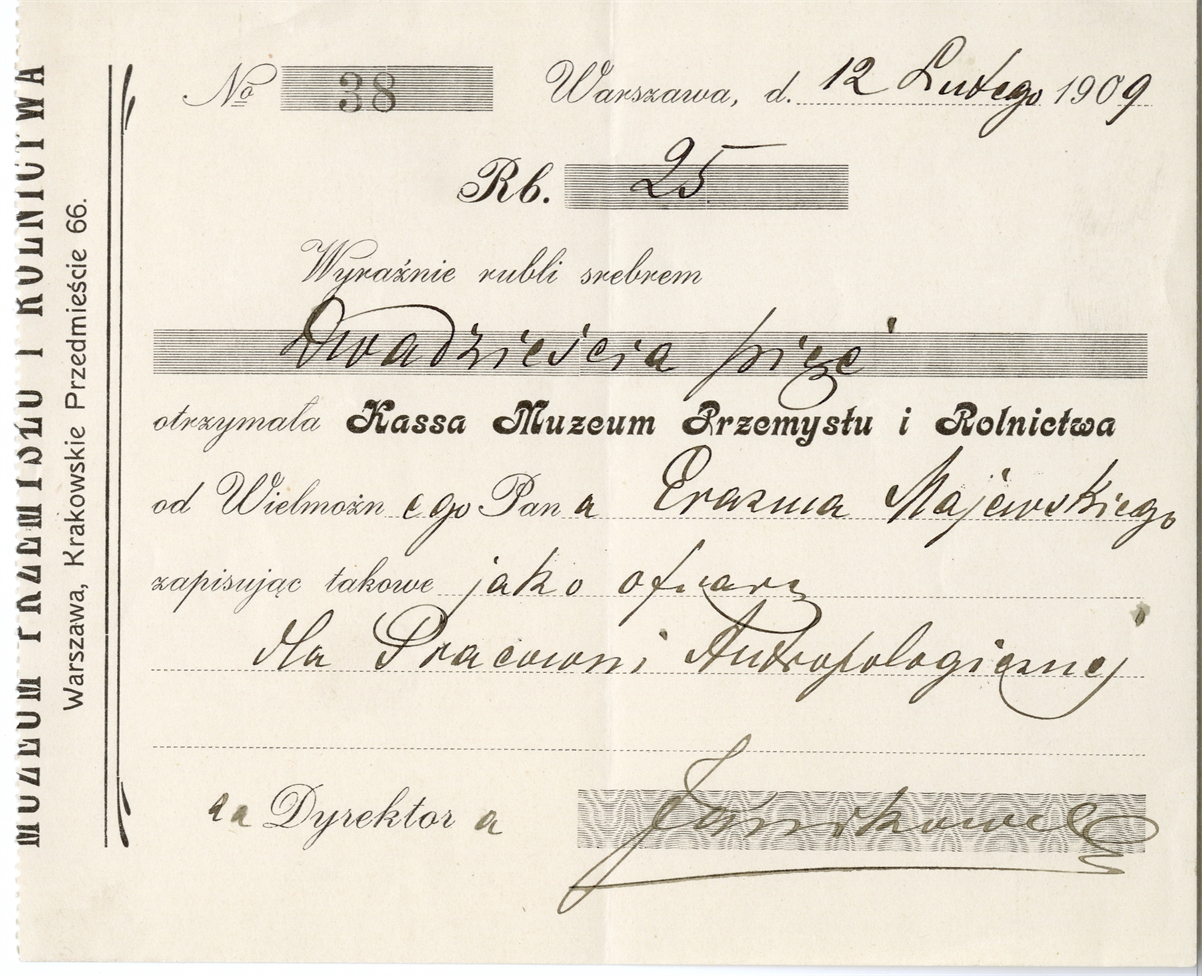 MUZEUM PRZEMYSŁU I ROLNICTWA
Warszawa, Krakowskie Przedmieście 66.
No 38 Warszawa, d. 12 Lutego 1909
Rb. 25
Wyraźnie rubli srebrem
Dwadzieścia pięć
otrzymała Kassa Muzeum Przemysłu i Rolnictwa
od Wielmożnego Pana Erazma Majewskiego
zapisując takowe jako ofiarę
dla Pracowni Antropologicznej
za Dyrektora